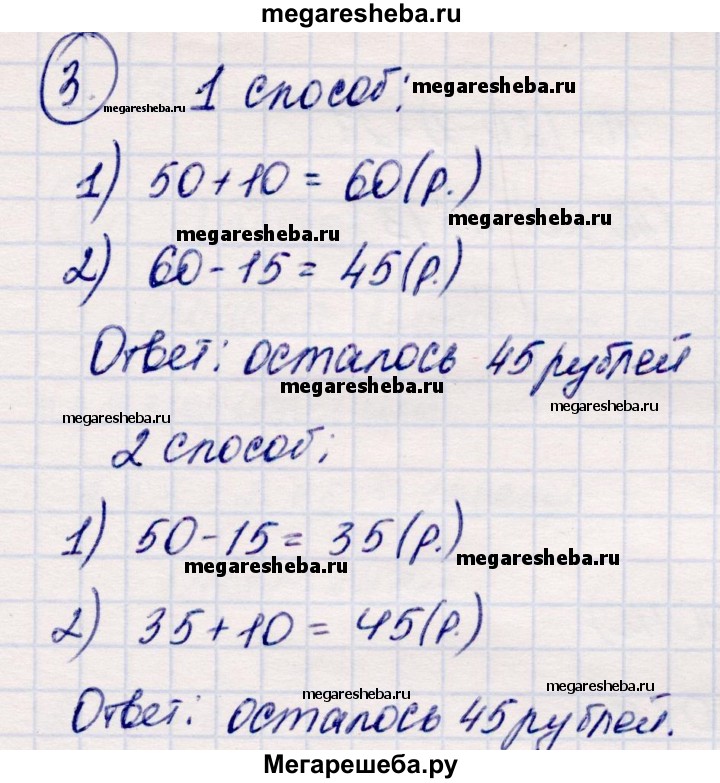 megaresheba.ru
3.
megaresheba.ru
1 способ: megaresheba.ru
1) 50+10 = 60(р.)
megaresheba.ru
megaresheba.ru
2) 60-15 = 45(р.)
Ответ: осталось 45 рублей
megaresheba.ru
megaresheba.ru
megaresheba.ru
2 способ:
1) 50-15 = 35(р.)
megaresheba.ru
megaresheba.ru
2) 35+10 = 45(р.)
megaresheba.ru
megaresheba.ru
Ответ: осталось 45 рублей.
Мегарешеба.ру